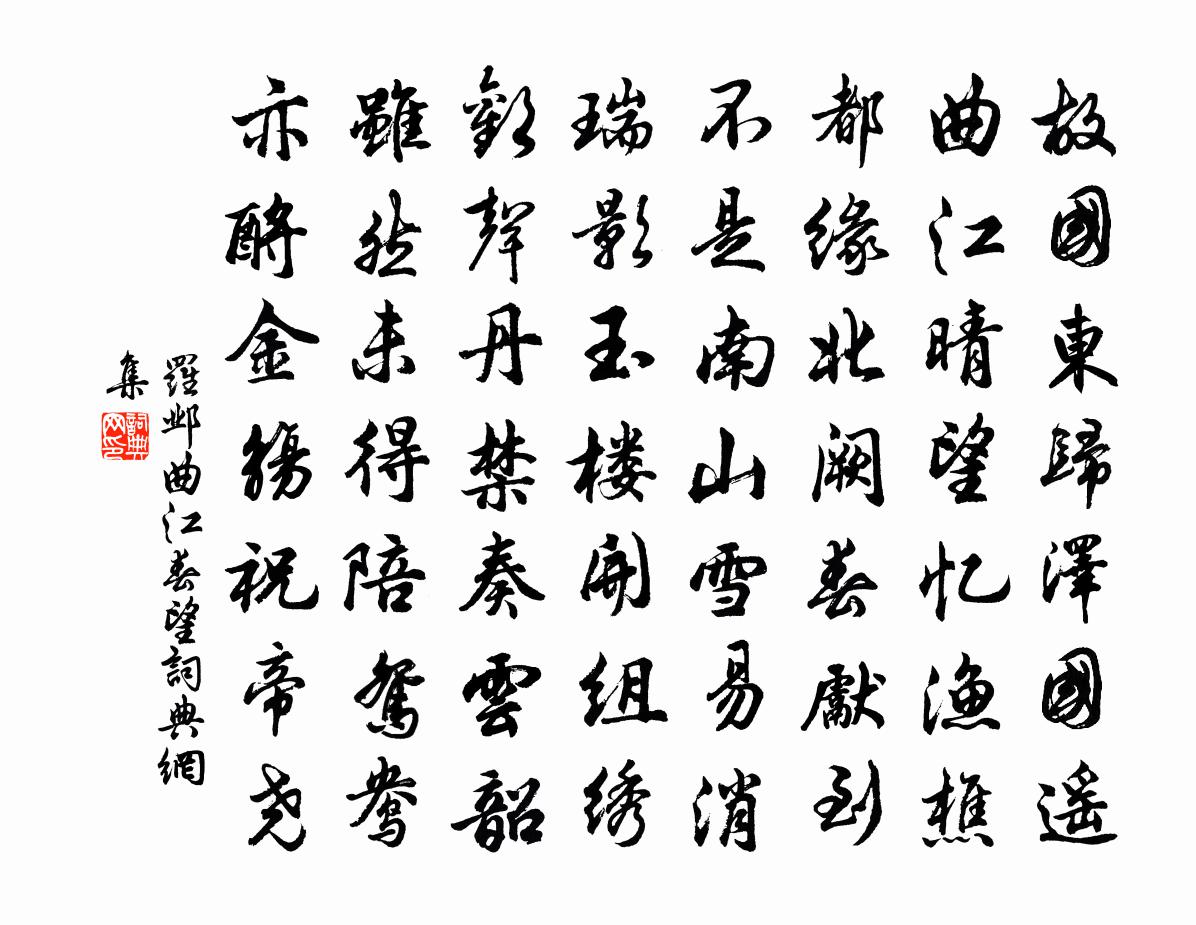 故國東歸澤國遥
曲江晴望忆漁樵
都緣北阙春獻到
不是南山雪易消
瑞影玉楼開组绣
歡聲丹禁奏雲韶
雖然未得陪鴛鴦
亦酹金觴祝帝尧
羅邺曲江春望詞典網
集
詞典网印